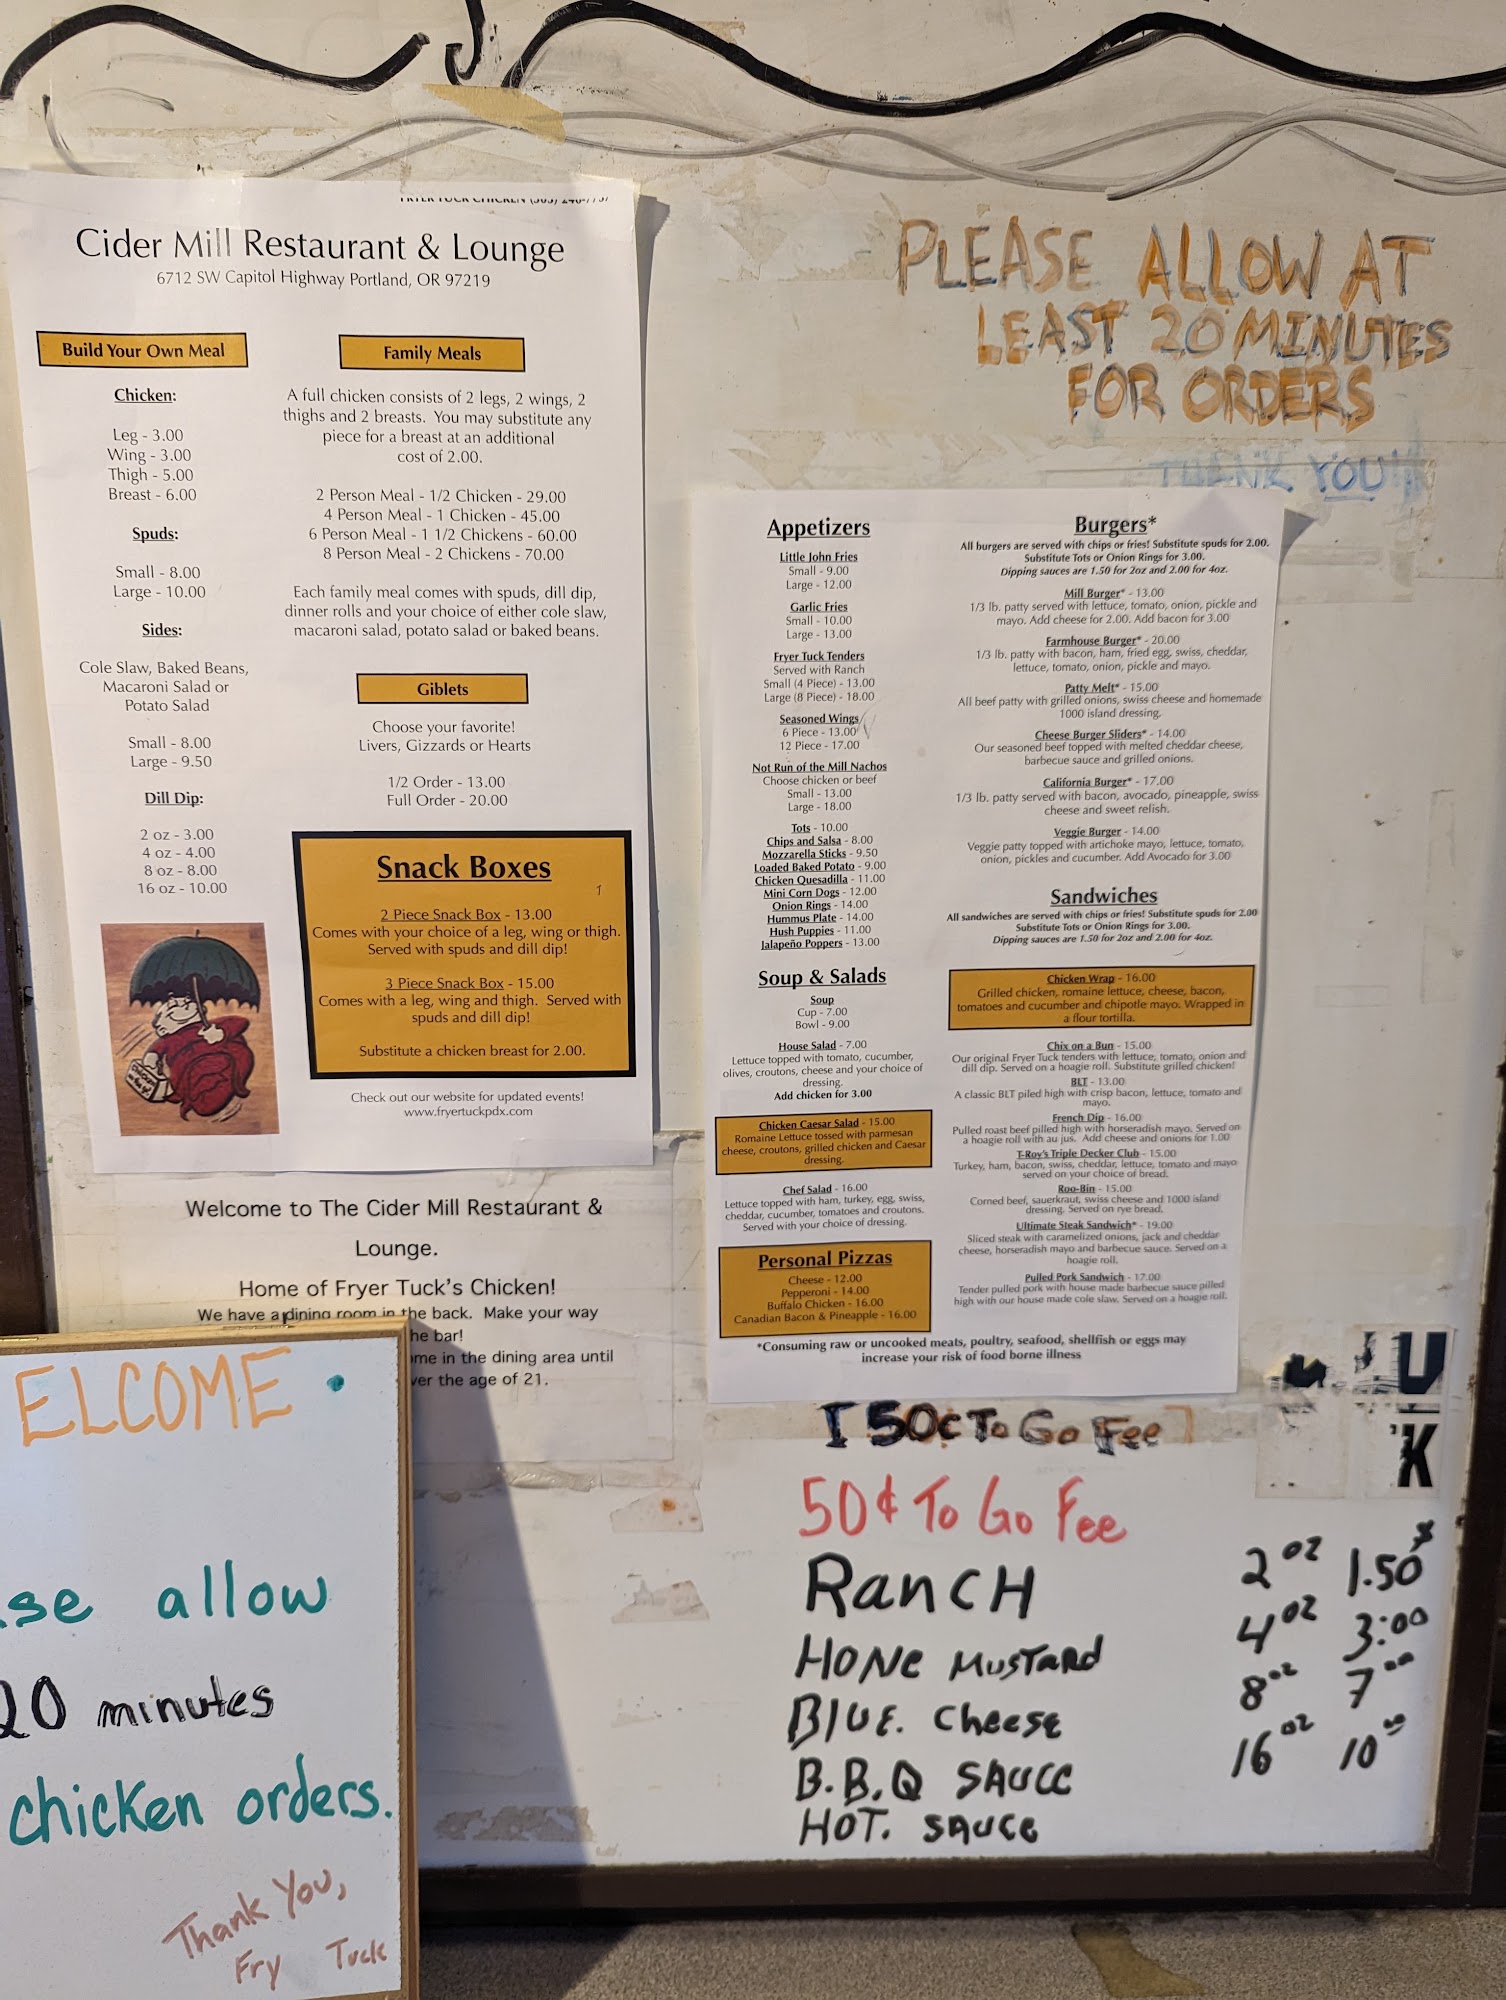 FRYER TUCK CHICKEN (503) 246-7737
Cider Mill Restaurant & Lounge
6712 SW Capitol Highway Portland, OR 97219
Build Your Own Meal
Chicken:
Leg - 3.00
Wing - 3.00
Thigh - 5.00
Breast - 6.00
Spuds:
Small - 8.00
Large - 10.00
Sides:
Cole Slaw, Baked Beans,
Macaroni Salad or
Potato Salad
Small - 8.00
Large - 9.50
Dill Dip:
2 oz - 3.00
4 oz - 4.00
8 oz - 8.00
16 oz - 10.00
Family Meals
A full chicken consists of 2 legs, 2 wings, 2
thighs and 2 breasts. You may substitute any
piece for a breast at an additional
cost of 2.00.
2 Person Meal - 1/2 Chicken - 29.00
4 Person Meal - 1 Chicken - 45.00
6 Person Meal - 1 1/2 Chickens - 60.00
8 Person Meal - 2 Chickens - 70.00
Each family meal comes with spuds, dill dip,
dinner rolls and your choice of either cole slaw,
macaroni salad, potato salad or baked beans.
Giblets
Choose your favorite!
Livers, Gizzards or Hearts
1/2 Order - 13.00
Full Order - 20.00
Snack Boxes
2 Piece Snack Box - 13.00
Comes with your choice of a leg, wing or thigh.
Served with spuds and dill dip!
3 Piece Snack Box - 15.00
Comes with a leg, wing and thigh. Served with
spuds and dill dip!
Substitute a chicken breast for 2.00.
Check out our website for updated events!
www.fryertuckpdx.com
Welcome to The Cider Mill Restaurant &
Lounge.
Home of Fryer Tuck's Chicken!
We have a dining room in the back. Make your way
he bar!
me in the dining area until
ver the age of 21.
ELCOME
se allow
20 minutes
chicken orders.
Thank You,
Fry Tuck
PLEASE ALLOW AT
LEAST 20 MINUTES
FOR ORDERS
THANK YOU!
Appetizers
Little John Fries
Small - 9.00
Large - 12.00
Garlic Fries
Small - 10.00
Large - 13.00
Fryer Tuck Tenders
Served with Ranch
Small (4 Piece) - 13.00
Large (8 Piece) - 18.00
Seasoned Wings
6 Piece - 13.00
12 Piece - 17.00
Not Run of the Mill Nachos
Choose chicken or beef
Small - 13.00
Large - 18.00
Tots - 10.00
Chips and Salsa - 8.00
Mozzarella Sticks - 9.50
Loaded Baked Potato - 9.00
Chicken Quesadilla - 11.00
Mini Corn Dogs - 12.00
Onion Rings - 14.00
Hummus Plate - 14.00
Hush Puppies - 11.00
Jalapeño Poppers - 13.00
Soup & Salads
Soup
Cup - 7.00
Bowl - 9.00
House Salad - 7.00
Lettuce topped with tomato, cucumber,
olives, croutons, cheese and your choice of
dressing.
Add chicken for 3.00
Chicken Caesar Salad - 15.00
Romaine Lettuce tossed with parmesan
cheese, croutons, grilled chicken and Caesar
dressing.
Chef Salad - 16.00
Lettuce topped with ham, turkey, egg, swiss,
cheddar, cucumber, tomatoes and croutons.
Served with your choice of dressing.
Personal Pizzas
Cheese - 12.00
Pepperoni - 14.00
Buffalo Chicken - 16.00
Canadian Bacon & Pineapple - 16.00
Burgers*
All burgers are served with chips or fries! Substitute spuds for 2.00.
Substitute Tots or Onion Rings for 3.00.
Dipping sauces are 1.50 for 2oz and 2.00 for 4oz.
Mill Burger* - 13.00
1/3 lb. patty served with lettuce, tomato, onion, pickle and
mayo. Add cheese for 2.00. Add bacon for 3.00
Farmhouse Burger* - 20.00
1/3 lb. patty with bacon, ham, fried egg, swiss, cheddar,
lettuce, tomato, onion, pickle and mayo.
Patty Melt* - 15.00
All beef patty with grilled onions, swiss cheese and homemade
1000 island dressing.
Cheese Burger Sliders* - 14.00
Our seasoned beef topped with melted cheddar cheese,
barbecue sauce and grilled onions.
California Burger* - 17.00
1/3 lb. patty served with bacon, avocado, pineapple, swiss
cheese and sweet relish.
Veggie Burger - 14.00
Veggie patty topped with artichoke mayo, lettuce, tomato,
onion, pickles and cucumber. Add Avocado for 3.00
Sandwiches
All sandwiches are served with chips or fries! Substitute spuds for 2.00
Substitute Tots or Onion Rings for 3.00.
Dipping sauces are 1.50 for 2oz and 2.00 for 4oz.
Chicken Wrap - 16.00
Grilled chicken, romaine lettuce, cheese, bacon,
tomatoes and cucumber and chipotle mayo. Wrapped in
a flour tortilla.
Chix on a Bun - 15.00
Our original Fryer Tuck tenders with lettuce, tomato, onion and
dill dip. Served on a hoagie roll. Substitute grilled chicken!
BLT - 13.00
A classic BLT piled high with crisp bacon, lettuce, tomato and
mayo.
French Dip - 16.00
Pulled roast beef pilled high with horseradish mayo. Served on
a hoagie roll with au jus. Add cheese and onions for 1.00
T-Roy's Triple Decker Club - 15.00
Turkey, ham, bacon, swiss, cheddar, lettuce, tomato and mayo
served on your choice of bread.
Roo-Bin - 15.00
Corned beef, sauerkraut, swiss cheese and 1000 island
dressing. Served on rye bread.
Ultimate Steak Sandwich* - 19.00
Sliced steak with caramelized onions, jack and cheddar
cheese, horseradish mayo and barbecue sauce. Served on a
hoagie roll.
Pulled Pork Sandwich - 17.00
Tender pulled pork with house made barbecue sauce pilled
high with our house made cole slaw. Served on a hoagie roll.
*Consuming raw or uncooked meats, poultry, seafood, shellfish or eggs may
increase your risk of food borne illness
[50¢ To Go Fee]
50¢ To Go Fee
RANCH
HONE MUSTARD
BLUE. CHEESE
B.B.Q SAUCE
HOT. SAUCE
2 oz 1.50$
4 oz 3:00
8 oz 7 00
16 oz 10 00
U
K